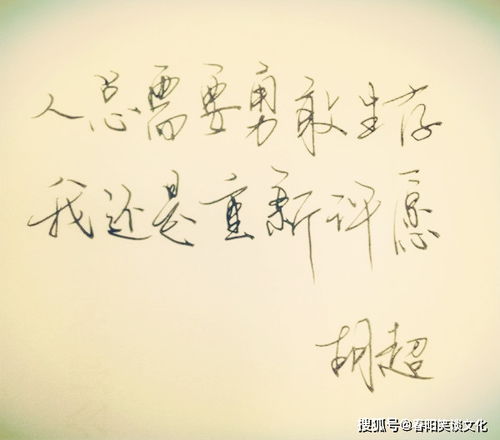 人总需要勇敢生存
我还是重新许愿
胡超
搜狐号@春阳笑谈文化